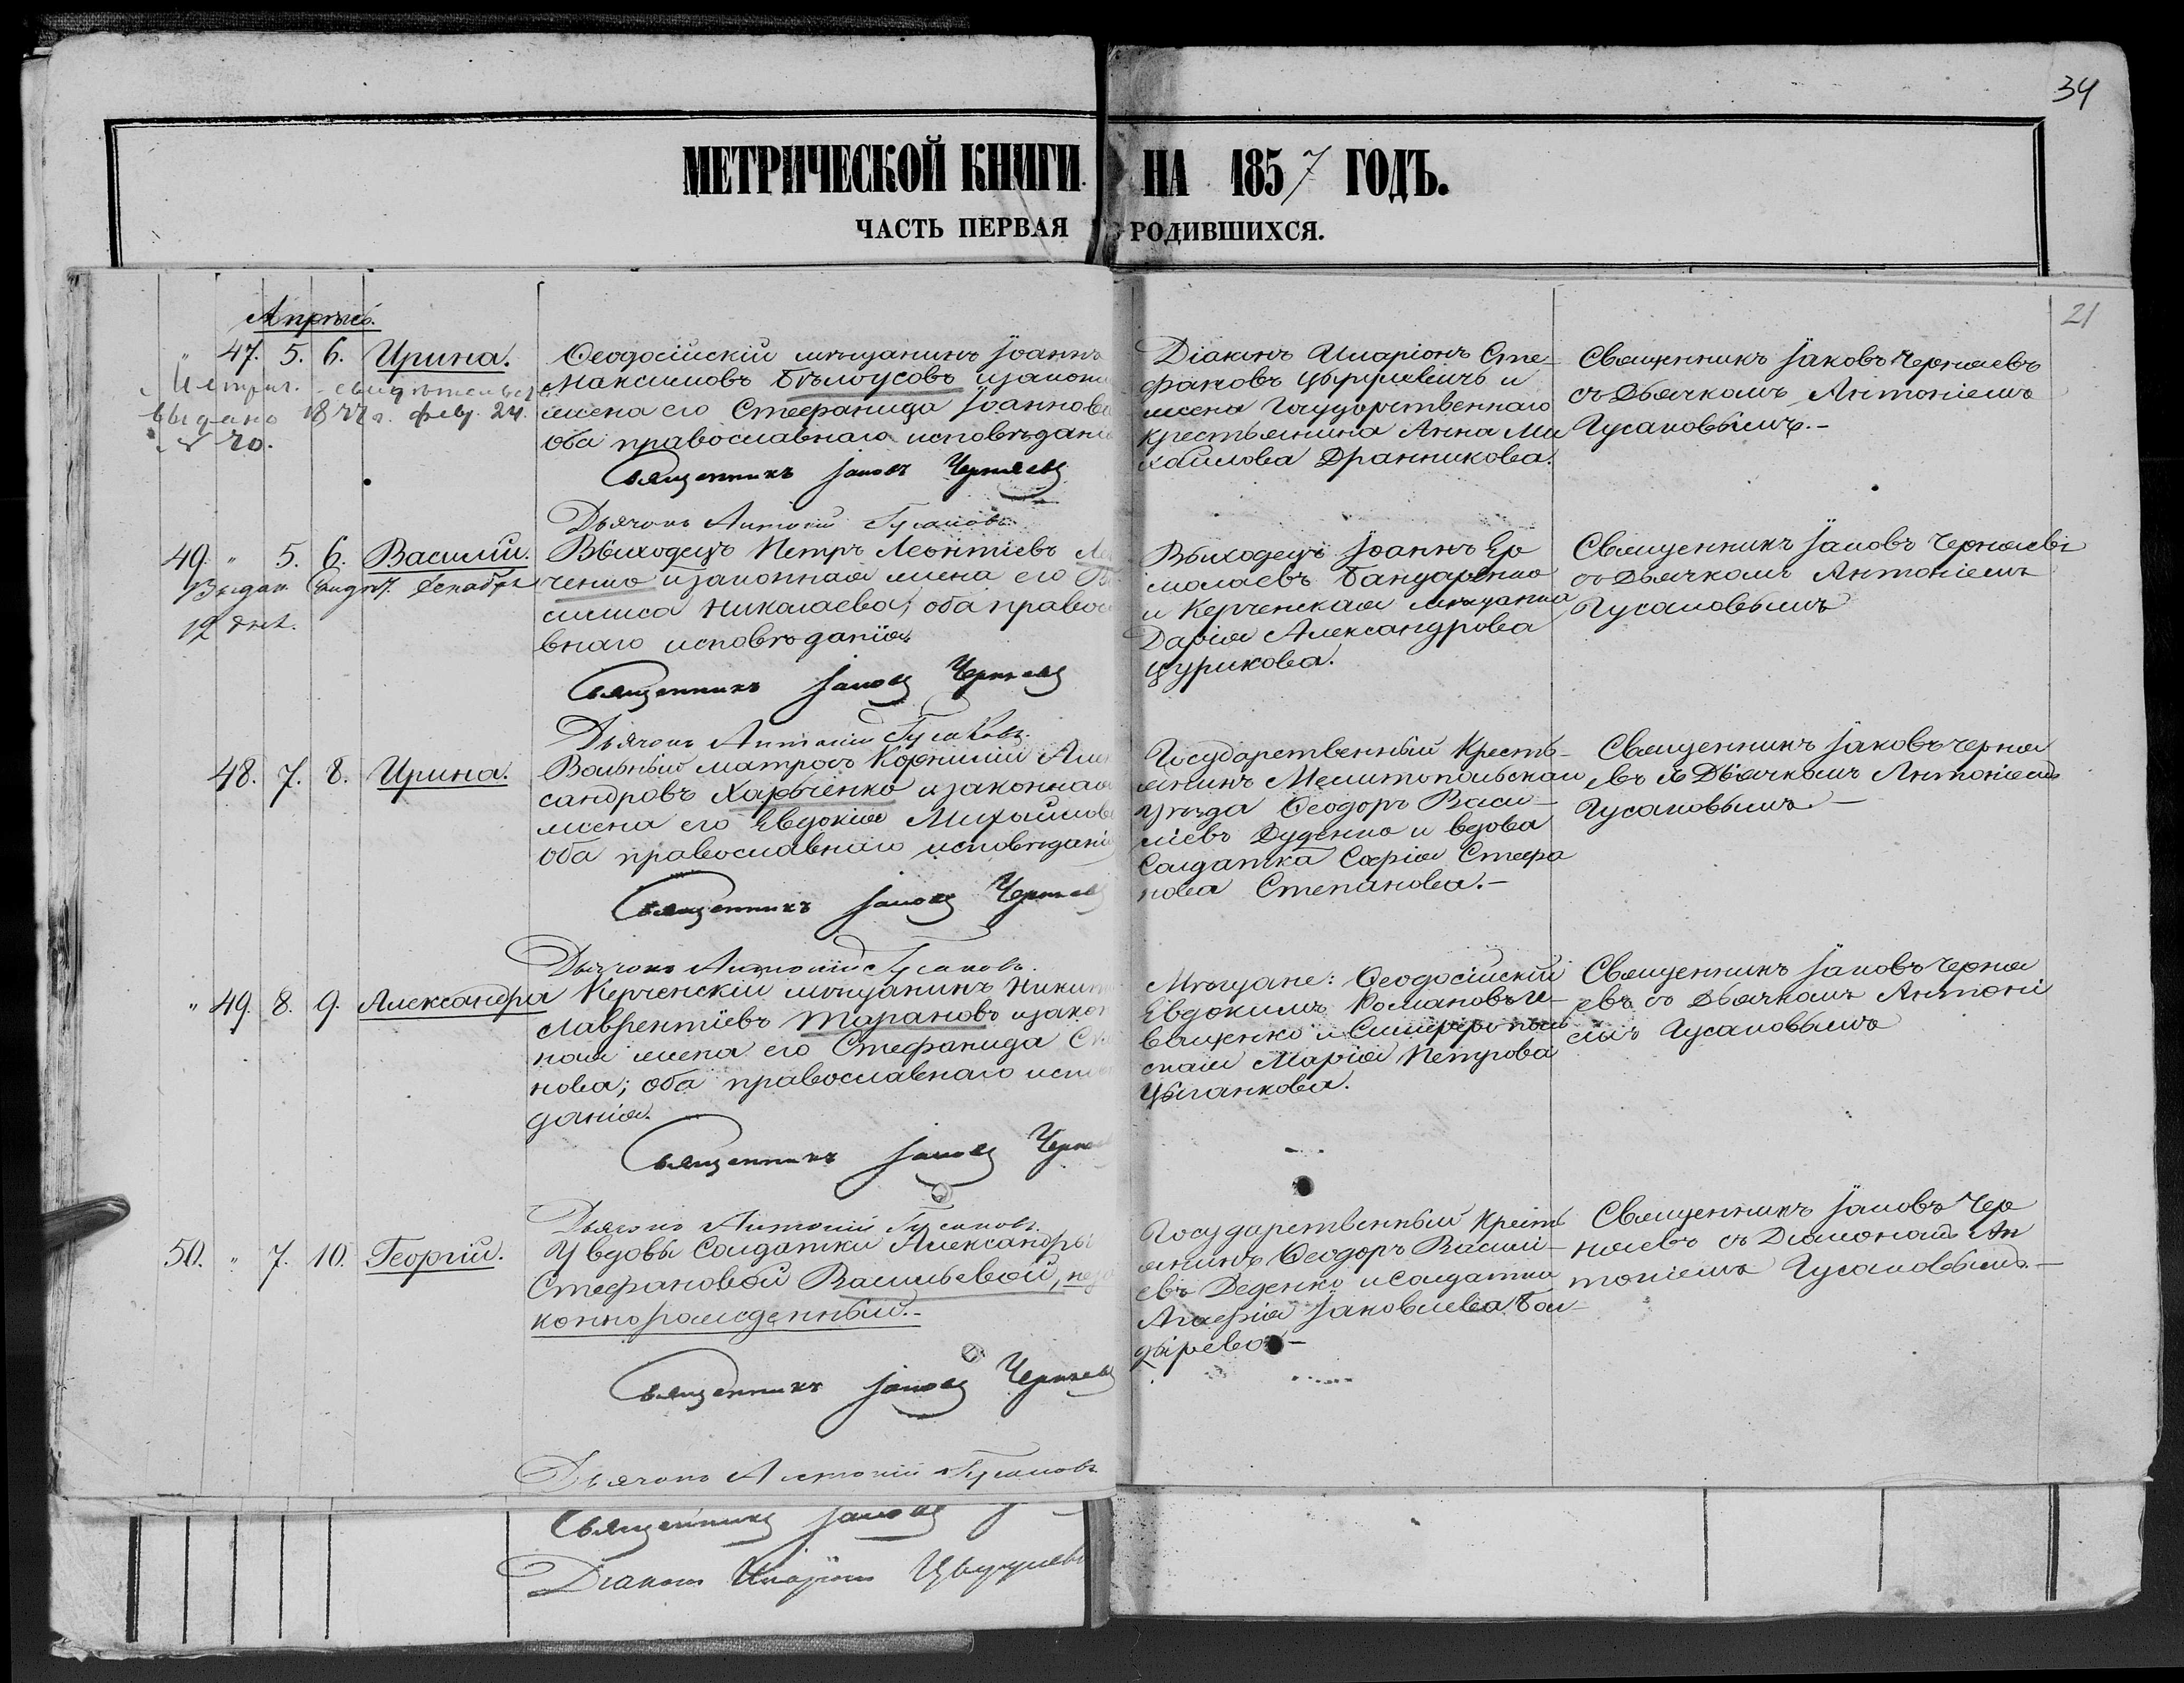 34
МЕТРИЧЕСКОЙ КНИГИ НА 1857 ГОДЪ.
ЧАСТЬ ПЕРВАЯ РОДИВШИХСЯ.
21
Апрѣль.
" 47. 5. 6. Ирина.
Метрич. свидѣтельст.
выдано 1877 г. февр. 24.
№ 70.
Ѳеодосійскій мѣщанинъ Іоаннъ
Максимовъ Бѣлоусовъ и законн
жена его Стефанида Іоаннова
оба православнаго исповѣдані
Священникъ Іаковъ Черняевъ
Дьячокъ Антоній Гусаковъ.
Діаконъ Иларіонъ Сте-
фановъ Цыгулевичъ и
жена Государственнаго
крестьянина Анна Ми
хайлова Дранникова.
Священникъ Іаковъ Черняевъ
съ Дьячкомъ Антоніемъ
Гусаковымъ.-
49. " 5. 6. Василій.
Выдан. Свидѣт. Декабря
12 дня.
Выходецъ Петръ Леонтіевъ Ле
ченко и законная жена его Ва
силиса Николаева; оба правос
внаго исповѣданія.
Священникъ Іаковъ Черняевъ
Дьячокъ Антоній Гусаковъ.
Выходецъ Іоаннъ Ер
молаевъ Бандаренко
и Керченская мѣщанка
Дарія Александрова
Цурикова.
Священникъ Іаковъ Черняевъ
съ Дьячкомъ Антоніемъ
Гусаковымъ
48. 7. 8. Ирина.
Вольный матросъ Корнилій Алек
сандровъ Харченко и законная
жена его Евдокія Михайлова
оба православнаго исповѣдані
Священникъ Іаковъ Черняевъ
Дьячокъ Антоній Гусаковъ.
Государственный Кресть-
янинъ Мелитопольскаго
уѣзда Ѳеодоръ Васи-
ліевъ Дуденко и вдова
Солдатка Софія Стефа
нова Степанова.-
Священникъ Іаковъ Черня
евъ съ Дьячкомъ Антоніемъ
Гусаковымъ.-
" 49. 8. 9. Александра
Керченскій мѣщанинъ Никита
Лаврентіевъ Тарановъ и закон
ная жена его Стефанида
нова; оба православнаго испов
данія.
Священникъ Іаковъ Черняевъ
Дьячокъ Антоній Гусаковъ.
Мѣщане: Ѳеодосійскій
Евдокимъ Романовъ И-
ващенко и Симферополь
ская Марія Петрова
Цыганкова.
Священникъ Іаковъ Черня
евъ съ Дьячкомъ Антоні
емъ Гусаковымъ
50. " 7. 10. Георгій.
У вдовы Солдатки Александры
Стефановой Васильевой, неза
коннорожденный.-
Священникъ Іаковъ Черняевъ
Дьячокъ Антоній Гусаковъ
Государственный Кресть
янинъ Ѳеодоръ Василі-
евъ Деденко и Солдатка
Іаковлева Бол-
дырева-
Священникъ Іаковъ Чер
няевъ съ Діакономъ Ан
тоніемъ Гусаковымъ.-
Священникъ Іаковъ
Діаконъ Иларіонъ Цыгулев